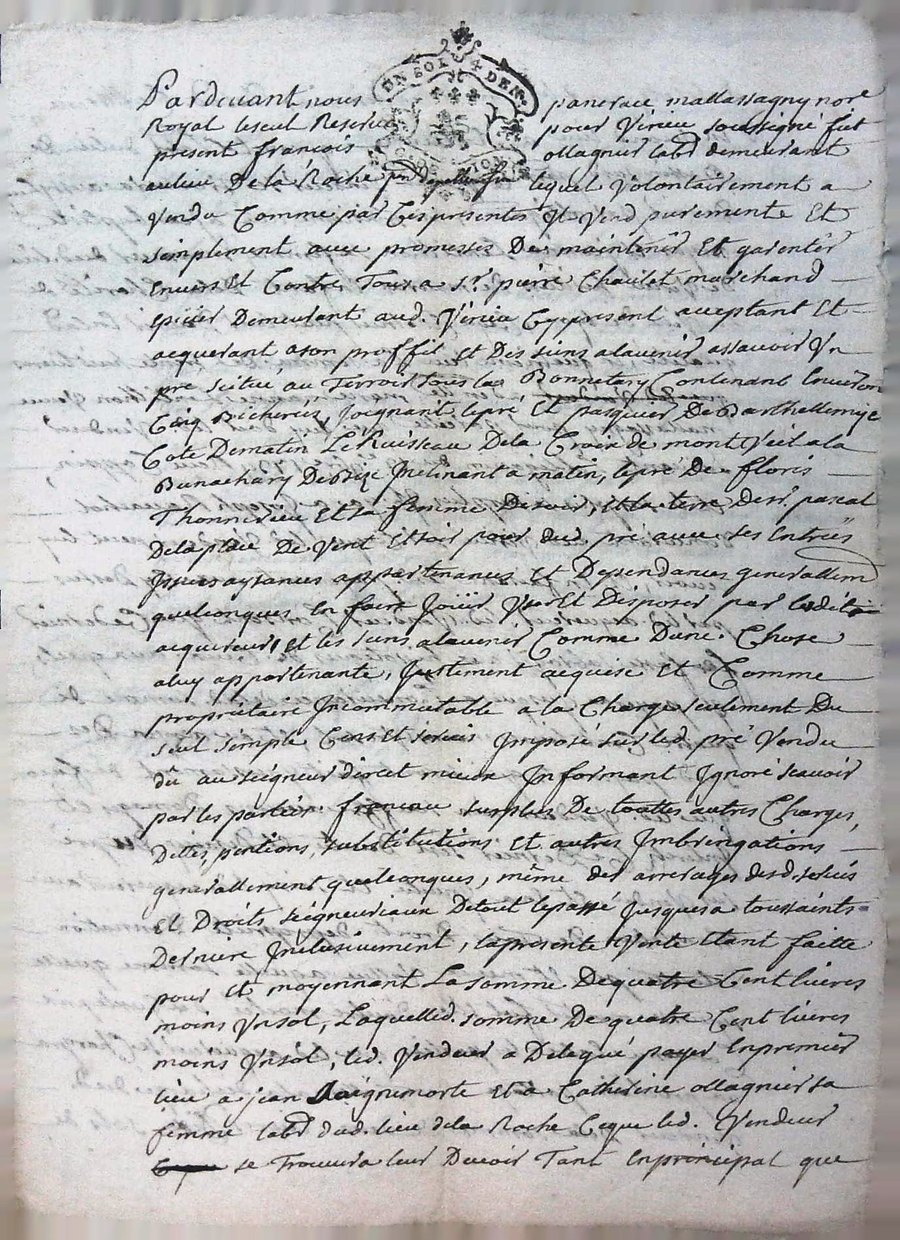 UN SOL DEN.
Pardevant nous pancrace mattassagny nore
Royal leseul Reservé pour Virieu soussigné fut
present françois ollagnier labr demeurant
aulieu Dela Roche lequel volontairement a
Vendu Comme par Ces presentes Il Vend purement Et
simplement avec promesses De maintenir Et garentir
Envers Et Contre Tous a sr. pierre Chaulet marchand
epicier Demeurant aud. Virieu Cypresent acceptant Et
acquerant ason proffit Et Des siens alavenir assavoir Un
pré scitué au Terroir sous la Bonnetary Contenant Environ
Cinq Bicherées, Joignant lepré Et pasquier De Barthellemy
Coté Dematin Le Ruisseau Dela Croix de mont Viel ala
Bunachary De Bize Inclinant a matin, lepré De floris
Thonnerieu Et sa femme De soir, Et la terre Desr. pascal
Delaplace De Vent Et soir pour dud. pré avec ses Entrées
Issues aysances appartenances Et Dependances generallem
quelconques En faire Joüir User Et Disposer par ledit
acquereur Et les siens alavenir Comme Dune Chose
aluy appartenante, Justement acquise Et Comme
propriétaire Incommutable a la Charge seulement Du
seul simple Cens Et servis Imposé sur led. pré Vendu
dû au seigneur direct mieux Informant Ignoré scavoir
par les parties franc au surplus De touttes autres Charges,
Dettes, pentions, substitutions Et autres Imbringations
generallement quelconques, même des arrerages desd. servis
Et Droits seigneuriaux Detout lepassé Jusques a toussaints
Derniere Inclusivement, lapresente Vente Etant faitte
pour Et moyennant La somme De quatre Cent livres
moins Unsol, Laquelled. somme De quatre Cent livres
moins Unsol, led. Vendeur a Delegué payer Enpremier
lieu a jean aiguemorte Et a Catherine ollagnier sa
femme labr dud. lieu dela Roche Ceque led. Vendeur
se Trouvera leur Devoir Tant Enprincipal que